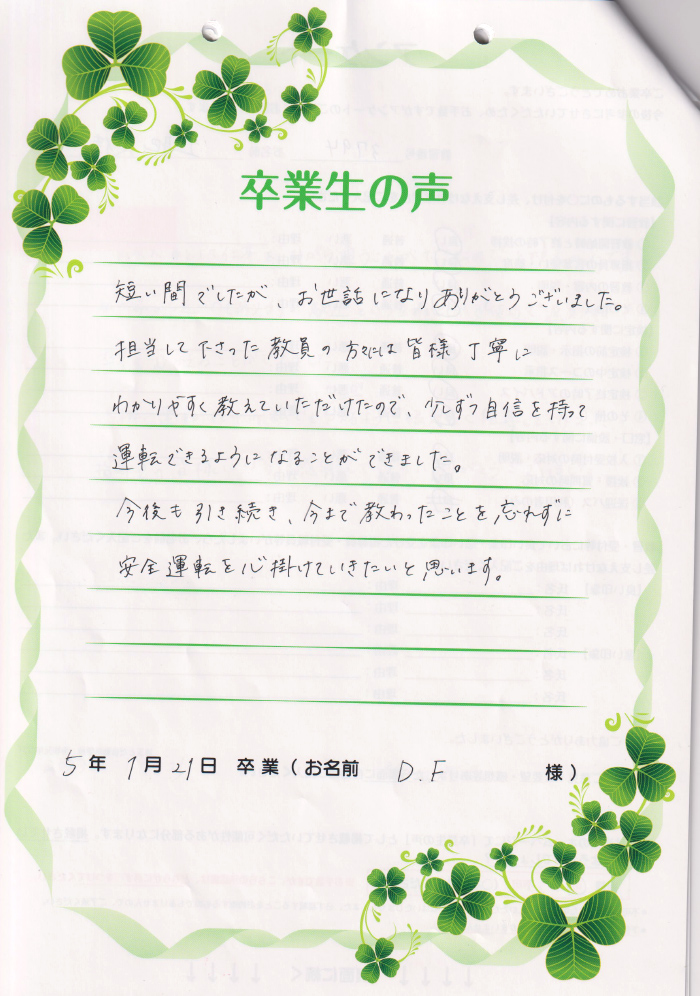 卒業生の声
短い間でしたが、お世話になりありがとうございました。
担当して下さった教員の方々には皆様丁寧に
わかりやすく教えていただけたので、少しずつ自信を持って
運転できるようになることができました。
今後も引き続き、今まで教わったことを忘れずに
安全運転を心掛けていきたいと思います。
5年 1月 21日 卒業(お名前 D.F 様)